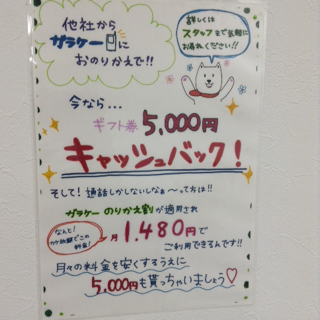 他社から
ガラケーに
おのりかえで!!
詳しくは
スタッフまで気軽に
お尋ねください!!
今なら...
ギフト券 5,000円
キャッシュバック!
そして!通話しかしないしなぁ〜って方は!!
ガラケーのりかえ割が適用され
なんと!
カケ放題でこの
料金!
月1.480円で
ご利用できるんです!!
月々の料金を安くするうえに
5,000円も貰っちゃいましょう♡